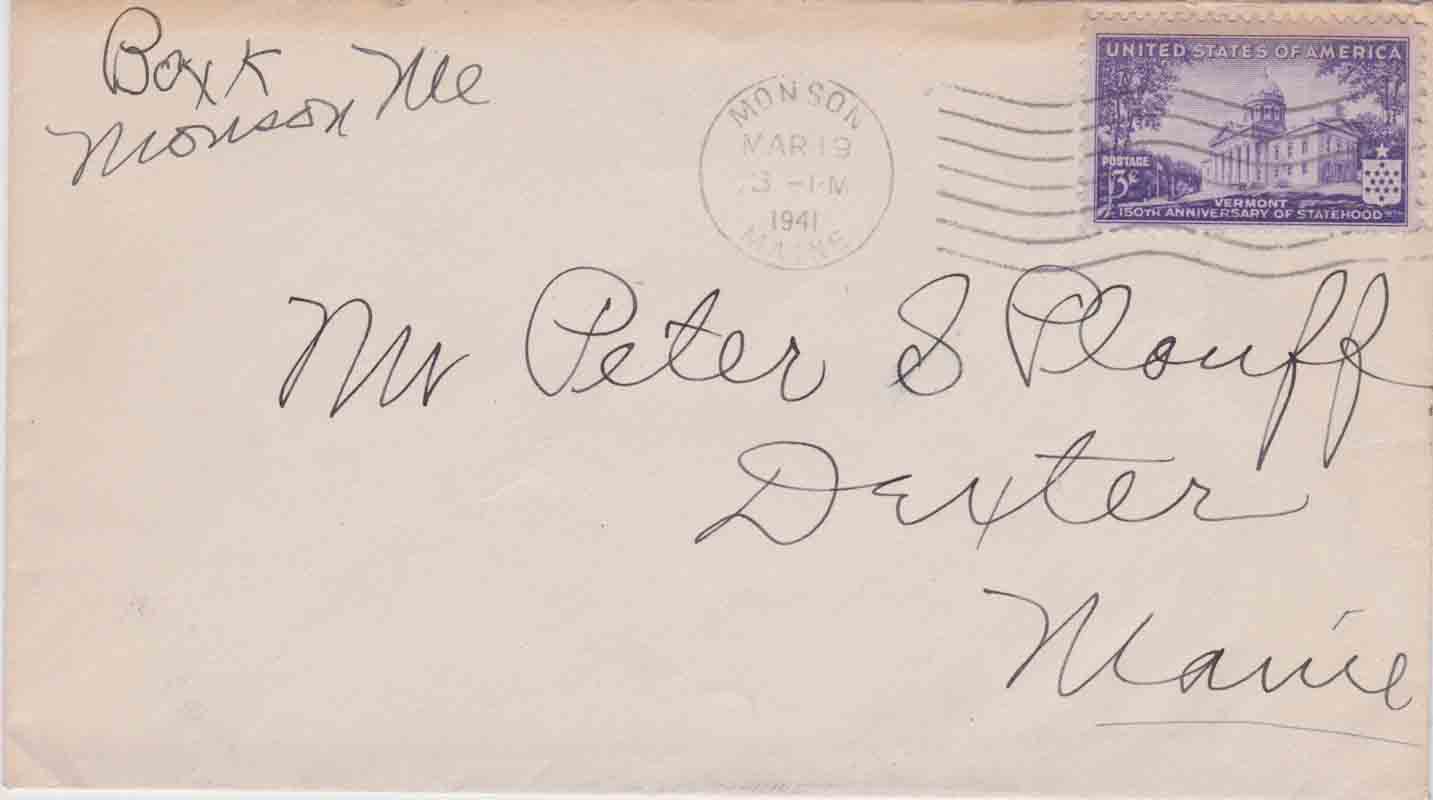 Box K
Monson Me
MONSON
MAR 19
1941
MAINE
UNITED STATES OF AMERICA
POSTAGE
3¢
VERMONT
150TH ANNIVERSARY OF STATEHOOD
Mr Peter S Plouff
Dexter
Maine